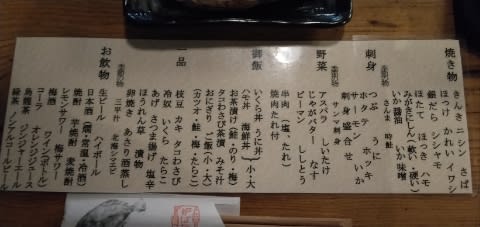 焼き物
きんき ニシン さば
ほっけ かれい イワシ
銀だら シシャモ
ほたて ほっき ハモ
みがきにしん(軟い・硬い)
いか醤油 いか味噌
季節限定
さんま 時鮭
刺身
つぶ うに
ホッテン ホッキ
サーモン いか
刺身盛合せ
季節限定
サンマ刺
野菜
アスパラ しいたけ
じゃがバター なす
ピーマン ししとう
串肉(塩・たれ)
焼肉たれ付
御飯
いくら丼 うに丼
ハモ丼 海鮮丼
小・大
お茶漬け(鮭・のり・梅)
タコわさび茶漬 みそ汁
おにぎり ご飯(小・大)
(カツオ・鮭・梅・たらこ)
一品
枝豆 カキ タコわさび
冷奴 いくら たらこ
あげ さつま揚げ 塩辛
ほうれん草 漬物
卵焼き あさり酒蒸し
季節限定
三平汁 北海シマエビ
お飲物
生ビール ハイボール
日本酒(燗・常温・冷酒)
焼酎 芋焼酎 麦焼酎
レモンサワー 梅サワー
梅酒 ワイン(ボトル)
コーラ オレンジジュース
烏龍茶 ジンジャーエール
緑茶 ノンアルコールビール
炉ばた